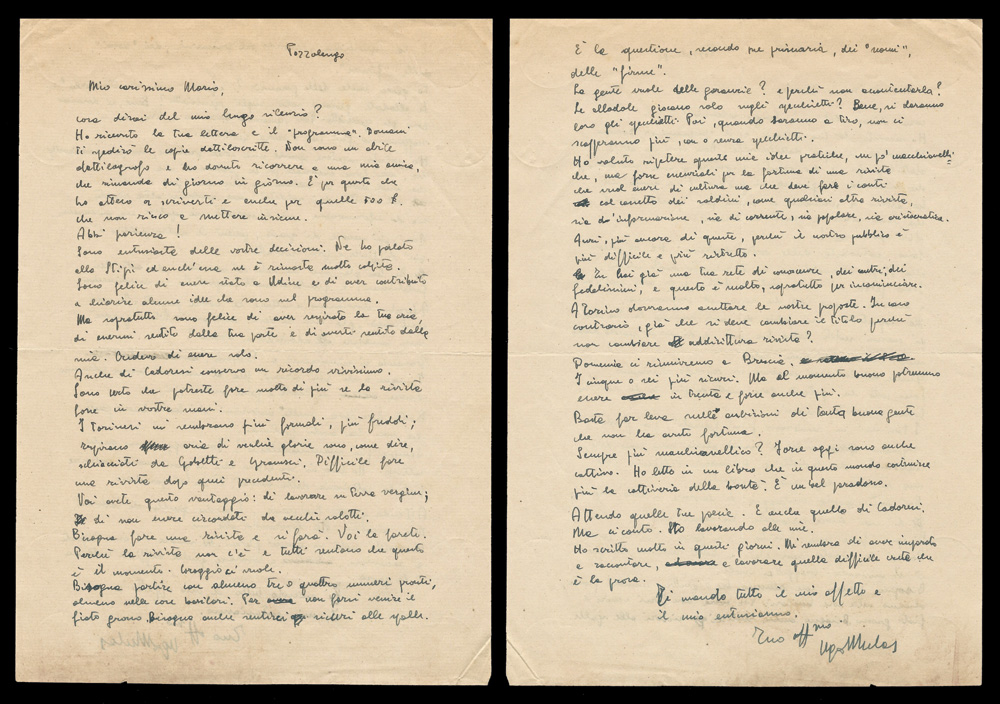 Pozzolengo
Mio carissimo Mario,
cosa dirai del mio lungo silenzio?
Ho ricevuto la tua lettera e il "programma". Domani
ti spedirò le copie dattiloscritte. Non sono un abile
dattilografo e ho dovuto ricorrere a una mia amica,
che rimanda di giorno in giorno. È per questo che
ho atteso a scriverti e anche per quelle 500 £.
che non riesco a mettere insieme.
Abbi pazienza!
Sono entusiasta delle vostre decisioni. Ne ho parlato
alla Stipi ed anch'essa ne è rimasta molto colpita.
Sono felice di essere stato a Udine e di aver contribuito
a chiarire alcune idee che sono nel programma.
Ma sopratutto sono felice di aver respirato la tua aria,
di essermi sentito dalla tua parte e di averti sentito dalla
mia. Credevo di essere solo.
Anche di Cadoresi conservo un ricordo vivissimo.
Sono certo che potreste fare molto di più se la rivista
fosse in vostre mani.
I Torinesi mi sembrano più formali, più freddi;
respirano aria di vecchie glorie sono, come dire,
schiacciati da Gobetti e Gramsci. Difficile fare
una rivista dopo quei precedenti.
Voi avete questo vantaggio: di lavorare in terra vergine;
di non essere circondati da vecchi salotti.
Bisogna fare una rivista e si farà. Voi la farete.
Perché la rivista non c'è e tutti sentono che questo
è il momento. Coraggio ci vuole.
Bisogna partire con almeno tre o quattro numeri pronti,
almeno nelle cose basilari. Per non farsi venire il
fiato grosso. Bisogna anche sentirsi sicuri alle spalle.
È la questione, secondo me primaria, dei "nomi",
delle "firme".
La gente vuole delle garanzie? e perché non accontentarla?
Le allodole giocano solo sugli specchietti? Bene, si daranno
loro gli specchietti. Poi, quando saranno a tiro, non ci
scapperanno più, con o senza specchietti.
Ho voluto ripetere queste mie idee pratiche, un po' macchiavelli=
che, ma forse essenziali per la fortuna di una rivista
che vuol essere di cultura ma che deve fare i conti
col cassetto dei soldini, come qualsiasi altra rivista,
sia da informazione, sia di corrente, sia popolare, sia aristocratica.
Anzi, più ancora di queste, perché il nostro pubblico è
più difficile e più ristretto.
Tu hai già una tua rete di conoscenze, dei nostri, dei
fedelissimi, e questo è molto, sopratutto per incominciare.
A Torino dovranno accettare le vostre proposte. In caso
contrario, già che si deve cambiare il titolo perché
non cambiare addirittura rivista?
Domenica ci riuniremo a Brescia.
I cinque o sei più sicuri. Ma al momento buono potremmo
essere in trenta e forse anche più.
Basta far leva sulle ambizioni di tanta buona gente
che non ha avuto fortuna.
Sempre più macchiavellico? Forse oggi sono anche
cattivo. Ho letto in un libro che in questo mondo costruisce
più la cattiveria della bontà. È un bel paradosso.
Attendo quelle tre poesie. E anche quello di Cadoresi.
Ma ci conto. Sto lavorando alle mie.
Ho scritto molto in questi giorni. Mi sembra di aver imparato
a raccontare, e lavorare quella difficile creta che
è la prosa.
Ti mando tutto il mio affetto e
il mio entusiasmo.
Tuo aff.mo
Ugo Mulas